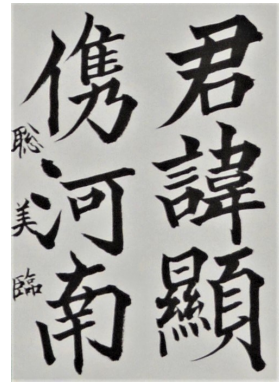 君諱顯
儁河南
聡美臨